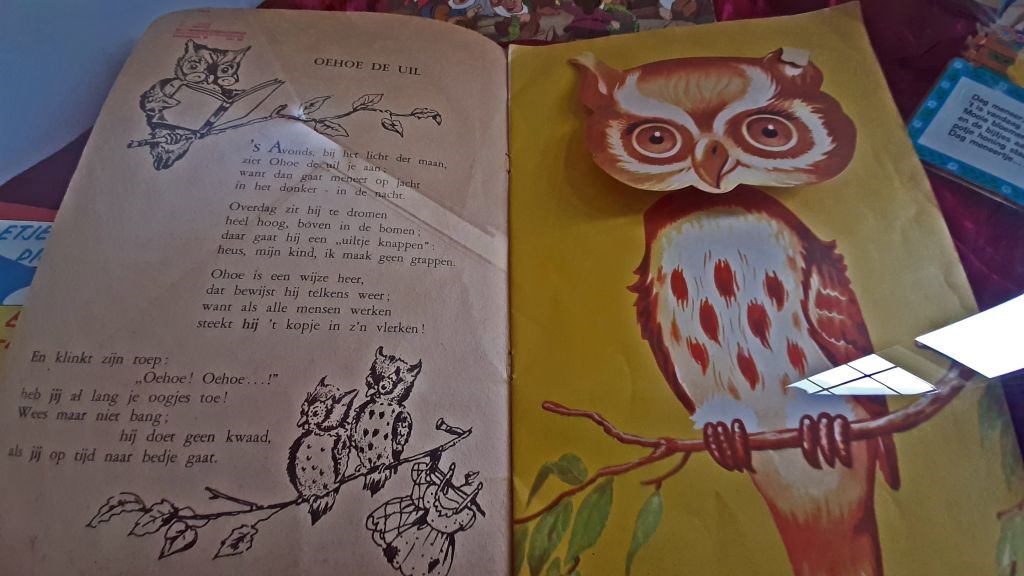 OEHOE DE UIL
's Avonds, bij het licht der maan,
ziet Ohoe de uil je aan;
want dan gaat meneer op jacht
in het donker - in de nacht.
Overdag zit hij te dromen
heel hoog, boven in de bomen;
daar gaat hij een „uiltje knappen":
heus, mijn kind, ik maak geen grappen.
Ohoe is een wijze heer,
dat bewijst hij telkens weer;
want als alle mensen werken
steekt hij 't kopje in z'n vlerken!
En klinkt zijn roep:
„Oehoe! Oehoe...!"
heb jij al lang je oogjes toe!
Wees maar niet bang;
hij doet geen kwaad,
als jij op tijd naar bedje gaat.
Dag meneer
't is verdwen
Moo
en de bijtjes
potje honing
Dag meneertje...